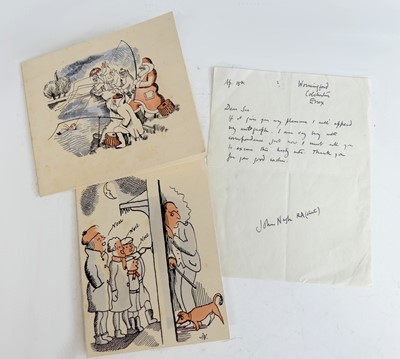 Wormingford
Colchester
Essex
Dear Sir
If it gives you any pleasure I will append
my autograph. I am very busy with
correspondence just now & must ask you
to excuse this hasty note. Thank you
for your good wishes.
John Nash RA
Noel
Noel
Noel